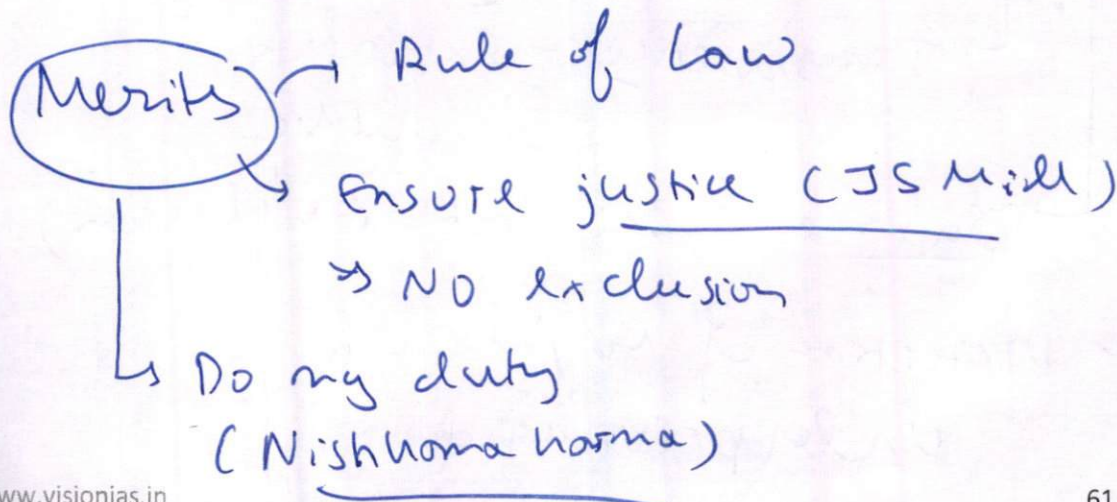 Merits → Rule of Law
→ Ensure justice (JS Mill)
→ NO exclusion
→ Do my duty
(Nishkama karma)
www.visionias.in
61